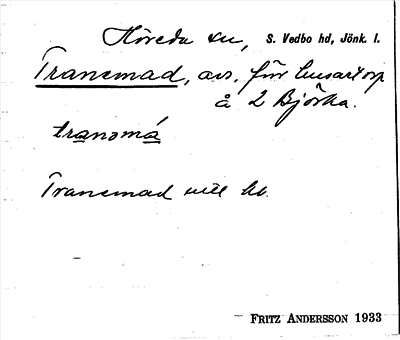 Höreda sn, S. Vedbo hd, Jönk. l.
Tranemad, avs. för husartorp
å 2 Björka.
tranəmá
Tranemad
FRITZ ANDERSSON 1933